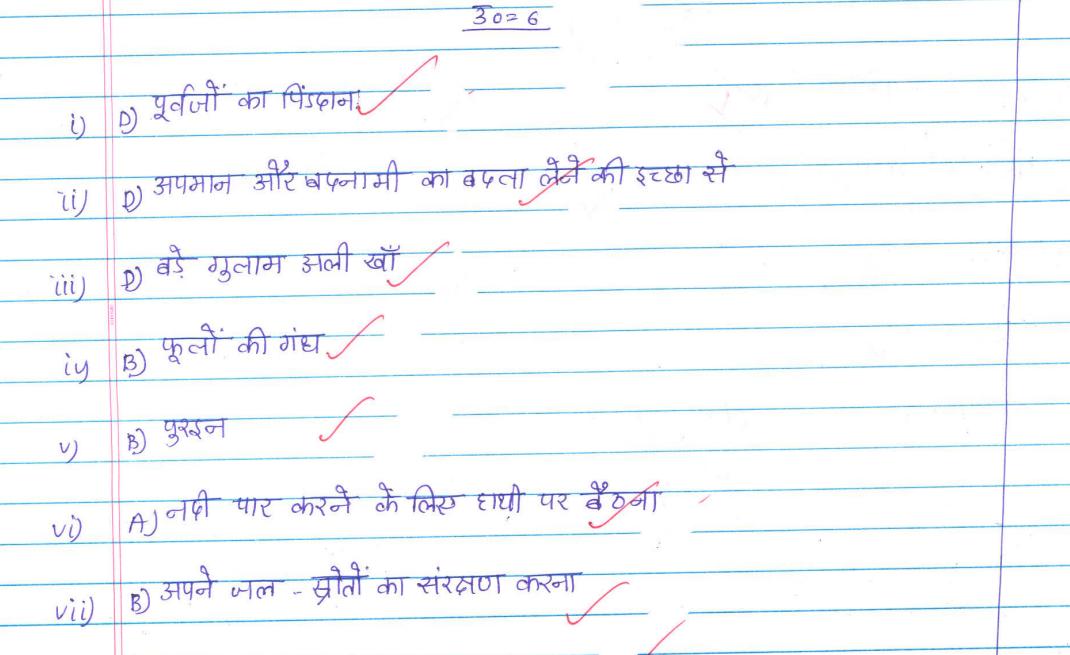 उ०=6
i) D) पूर्वजों का पिंडदान
ii) D) अपमान और बदनामी का बदला लेने की इच्छा से
iii) D) बड़े गुलाम अली खाँ
iv) B) फूलों की गंध
v) B) पुरइन
vi) A) नदी पार करने के लिए हाथी पर बैठना
vii) B) अपने जल - स्रोतों का संरक्षण करना